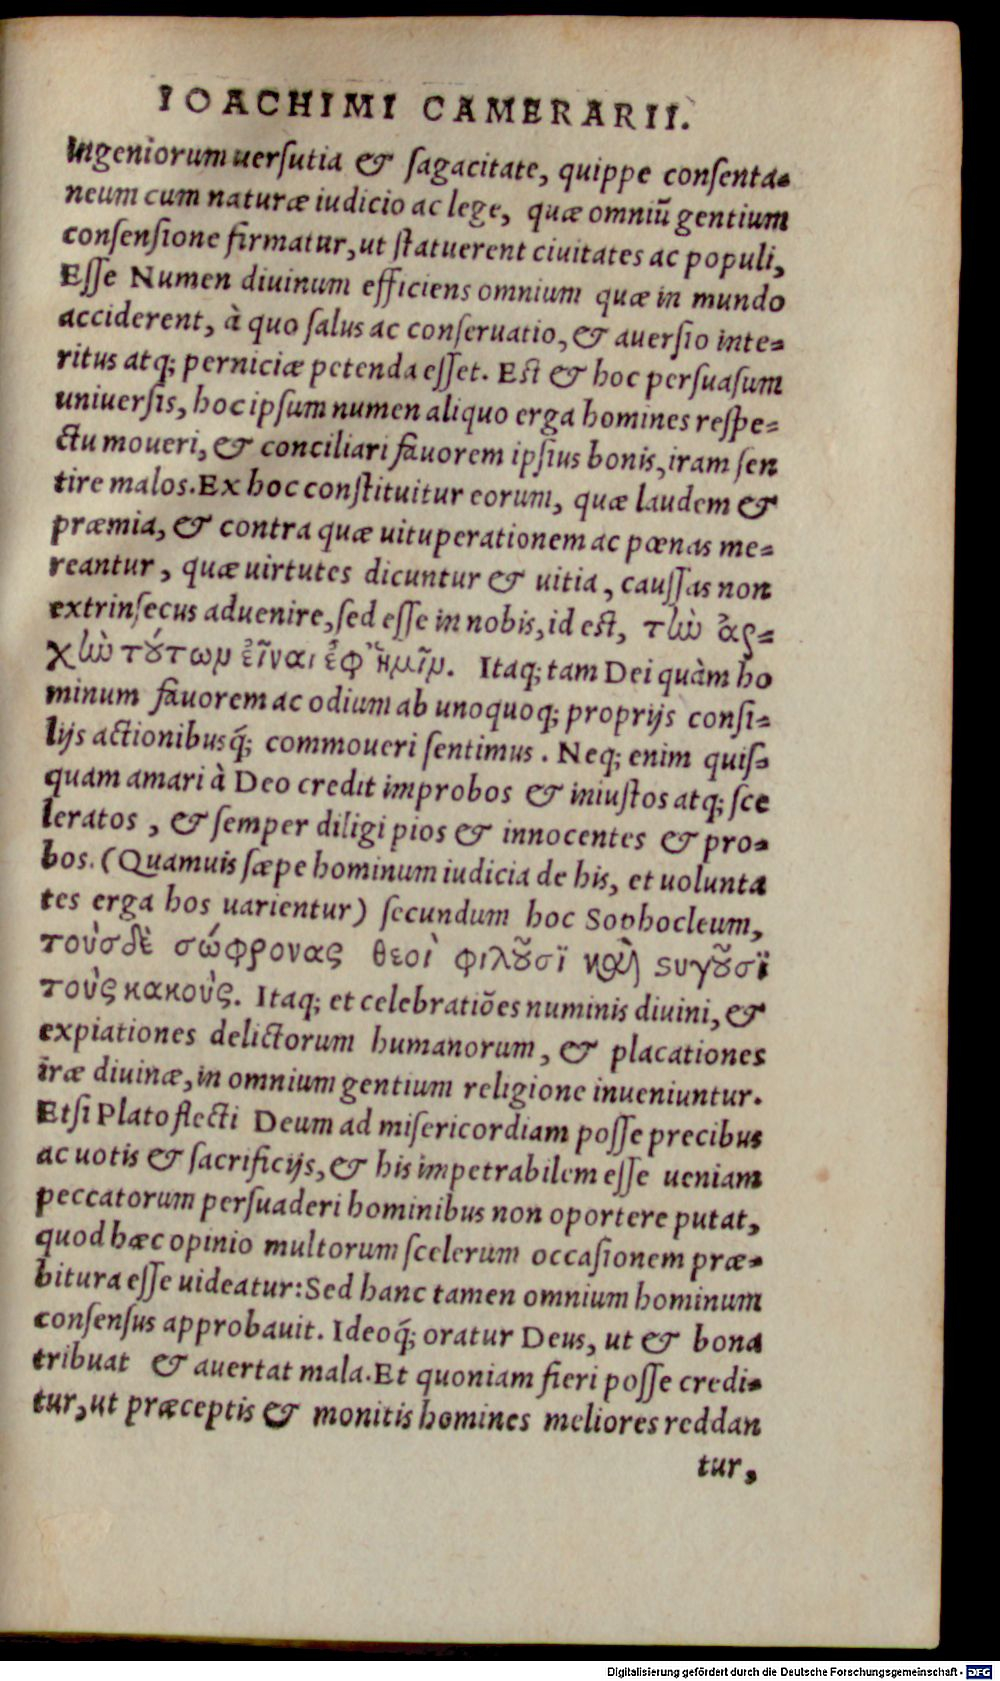 IOACHIMI CAMERARII.
Ingeniorum uersutia & sagacitate, quippe consenta-
neum cum naturæ iudicio ac lege, quæ omniũ gentium
consensione firmatur, ut statuerent ciuitates ac populi,
Esse Numen diuinum efficiens omnium quæ in mundo
acciderent, à quo salus ac conseruatio, & auersio inte-
ritus atq; perniciæ petenda esset. Est & hoc persuasum
uniuersis, hoc ipsum numen aliquo erga homines respe-
ctu moueri, & conciliari fauorem ipsius bonis, iram sen
tire malos. Ex hoc constituitur eorum, quæ laudem &
præmia, & contra quæ uituperationem ac pœnas me-
reantur, quæ uirtutes dicuntur & uitia, caussas non
extrinsecus aduenire, sed esse in nobis, id est, τὼ ἀρ-
χὼ τȣ́τωμ εἶναι ἐφ' ἡμῖμ. Itaq; tam Dei quàm ho
minum fauorem ac odium ab unoquoq; proprijs consi-
lijs actionibusq́; commoueri sentimus. Neq; enim quis-
quam amari à Deo credit improbos & iniustos atq; sce
leratos, & semper diligi pios & innocentes & pro-
bos. (Quamuis sæpe hominum iudicia de his, et uolunta
tes erga hos uarientur) secundum hoc Sophocleum,
τοὺσδὲ σώφρονας θεοὶ φιλȣ̃σϊ καὶ ϛυγȣ̃σϊ
τοὺς κακοὺς. Itaq; et celebratiões numinis diuini, &
expiationes delictorum humanorum, & placationes
iræ diuinæ, in omnium gentium religione inueniuntur.
Etsi Plato flecti Deum ad misericordiam posse precibus
ac uotis & sacrificijs, & his impetrabilem esse ueniam
peccatorum persuaderi hominibus non oportere putat,
quod hæc opinio multorum scelerum occasionem præ-
bitura esse uideatur: Sed hanc tamen omnium hominum
consensus approbauit. Ideoq́; oratur Deus, ut & bona
tribuat & auertat mala. Et quoniam fieri posse credi-
tur, ut præceptis & monitis homines meliores reddan
tur,
Digitalisierung gefördert durch die Deutsche Forschungsgemeinschaft - DFG